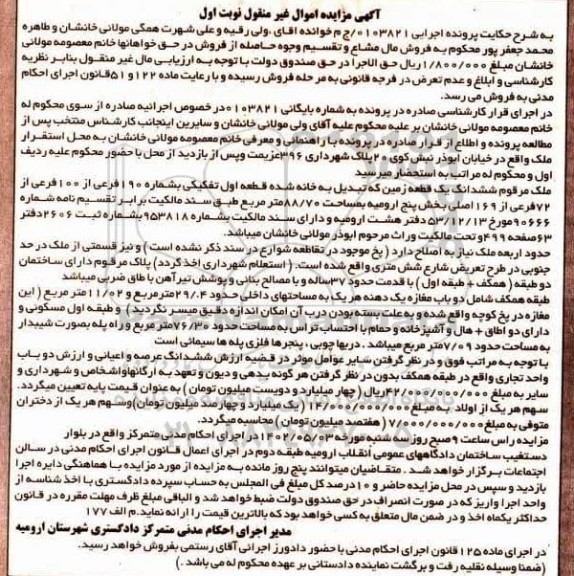 آگهی مزایده اموال غیر منقول نوبت اول
به شرح حکایت پرونده اجرایی ۰۱۰۳۸۲۱/ج م خوانده آقای ولی رقیه و علی شهرت همگی مولانی خانشان و طاهره
محمد جعفر پور محکوم به فروش مال مشاع و تقسیم وجوه حاصله از فروش در حق خواهانها خانم معصومه مولانی
خانشان مبلغ ۱/۸۰۰/۰۰۰ ریال حق الاجرا در حق صندوق دولت با توجه به ارزیابی مال غیر منقول بنابر نظریه
کارشناسی و ابلاغ و عدم تعرض در فرجه قانونی به مرحله فروش رسیده و با رعایت ماده ۱۲۲ و ۵۱ قانون اجرای احکام
مدنی به فروش می رسد.
در اجرای قرار کارشناسی صادره در پرونده به شماره بایگانی ۰۱۰۳۸۲۱ در خصوص اجرائیه صادره از سوی محکوم له
خانم معصومه مولانی خانشان بر علیه محکوم علیه آقای ولی مولانی خانشان و سایرین اینجانب کارشناس منتخب پس از
مطالعه پرونده و اطلاع از قرار صادره در پرونده با راهنمائی و معرفی خانم معصومه مولانی خانشان به محل استقرار
ملک واقع در خیابان ابوذر نبش کوی ۲۰ پلاک شهرداری ۳۹۶ عزیمت و پس از بازدید از محل با حضور محکوم علیه ردیف
اول و محکوم له مراتب به استحضار میرسید
ملک مرقوم ششدانگ یک قطعه زمین که تبدیل به خانه شده قطعه اول تفکیکی بشماره ۱۹۰ فرعی از ۱۰۰ فرعی از
۷۲ فرعی از ۱۶۹ اصلی بخش پنج ارومیه بمساحت ۸۸/۷۰ متر مربع طبق سند مالکیت برابر تقسیم نامه شماره
۹۰۶۶۶ مورخ ۵۳/۱۲/۱۳ دفتر هشت ارومیه و دارای سند مالکیت بشماره ۹۵۳۸۱۸ بشماره ثبت ۲۶۰۶ دفتر
۶۳ صفحه ۴۹۹ و تحت مالکیت وراث مرحوم ابوذر مولانی خانشان میباشد.
حدود اربعه ملک نیاز به اصلاح دارد ( پخ موجود در تقاطعه شوارع در سند ذکر نشده است ) و نیز قسمتی از ملک در حد
جنوبی در طرح تعریض شارع شش متری واقع شده است. ( استعلام شهرداری اخذ گردد) پلاک مرقوم دارای ساختمان
دو طبقه ( همکف + طبقه اول ) با قدمت حدود ۳۷ ساله و با مصالح بنائی و پوشش تیرآهن با طاق ضربی میباشد
طبقه همکف شامل دو باب مغازه یک دهنه هر یک به مساحتهای داخلی حدود ۲۹/۰۴ متر مربع و ۱۱/۰۲ متر مربع ( این
مغازه در پخ کوچه واقع شده و به علت بسته بودن درب آن امکان اندازه دقیق میسر نگردید ) و طبقه اول مسکونی و
دارای دو اطاق + هال و آشپزخانه و حمام با احتساب تراس به مساحت حدود ۷۶/۳۰ متر مربع و راه پله بصورت شیبدار
به مساحت حدود ۷/۰۹ متر مربع میباشد . دربها چوبی ، پنجرها فلزی پله ها سیمانی است
با توجه به مراتب فوق و در نظر گرفتن سایر عوامل موثر در قضیه ارزش ششدانگ عرصه و اعیانی و ارزش دو باب
واحد تجاری واقع در طبقه همکف بدون در نظر گرفتن هر گونه بدهی و دیون و تعهد به ارگانها و اشخاص و شهرداری و
سایر به مبلغ ریال ( چهار میلیارد و دویست میلیون تومان ) به عنوان قیمت پایه تعیین میگردد.
سهم هر یک از اولاد به مبلغ ۱۴/۰۰۰/۰۰۰/۰۰۰ ( یک میلیارد و چهارصد میلیون تومان) و سهم هر یک از دختران
متوفی به مبلغ ۷/۰۰۰/۰۰۰/۰۰۰ ( هفتصد میلیون تومان ) محاسبه میگردد.
مزایده راس ساعت ۹ صبح روز شنبه مورخه در اجرای احکام مدنی متمرکز واقع در بلوار
دستغیب ساختمان دادگاههای عمومی انقلاب ارومیه طبقه دوم در اجرای اعمال قانون اجرای احکام مدنی در سالن
اجتماعات برگزار خواهد شد . متقاضیان میتوانند پنج روز مانده به مزایده از مورد مزایده با هماهنگی دایره اجرا
بازدید و سپس در محل مزایده حاضر و ۱۰ درصد کل مبلغ فی المجلس به حساب سپرده دادگستری با اخذ شناسه از
واحد اجرا واریز که در صورت انصراف در حق صندوق دولت ضبط خواهد شد و الباقی مبلغ ظرف مهلت مقرره در قانون
حداکثر یکماه اخذ و در ضمن مال متعلق به کسی خواهد بود که بالاترین قیمت را ارائه نماید. م الف ۱۷۷
مدیر اجرای احکام مدنی متمرکز دادگستری شهرستان ارومیه
در اجرای ماده ۱۲۵ قانون اجرای احکام مدنی با حضور دادورز اجرائی آقای رستمی بفروش خواهد رسید.
(ضمنا وسیله نقلیه رفت و برگشت نماینده دادستانی بر عهده محکوم له می باشد .)